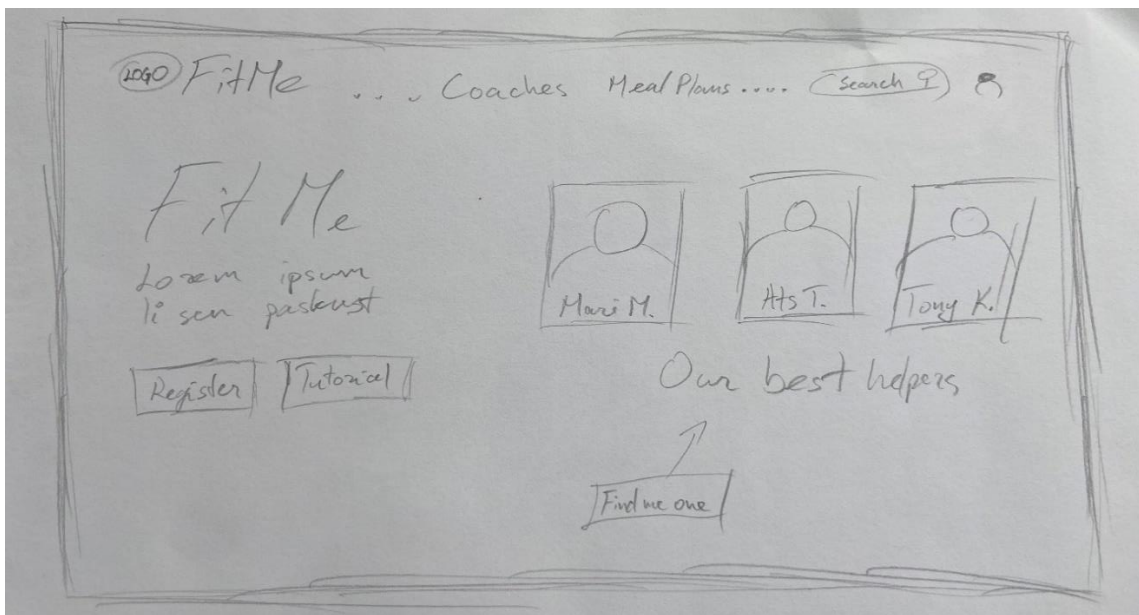 LOGO FitMe .... Coaches Meal Plans .... Search
Fit Me
Lorem ipsum
li sen paskust
Register Tutorial
Mari M. Ats T. Tony K.
Our best helpers
Find me one